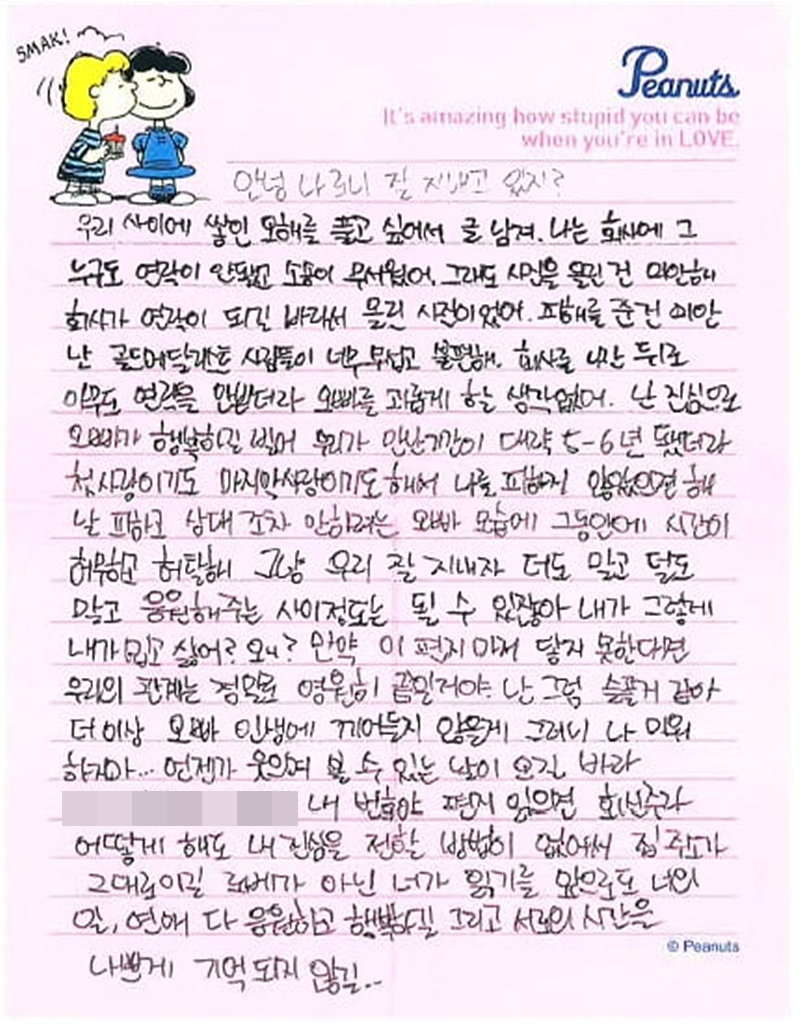 SMAK!
Peanuts
It's amazing how stupid you can be
when you're in LOVE.
안녕 나 새로이 잘 지내고 있지?
우리 사이에 쌓인 오해를 풀고 싶어서 글 남겨. 나는 회사에 그
누구도 연락이 안됐고 소송이 무서웠어. 그래도 사진을 올린 건 미안해
회사가 연락이 되길 바래서 올린 사진이었어. 피해를 준건 미안
난 골드메달리스트 사람들이 너무 무섭고 불편해. 회사를 나간 뒤로
아무도 연락을 안받더라 오빠를 괴롭게 할 생각없어. 난 진심으로
오빠가 행복하길 빌어 우리가 만난기간이 대략 5-6년 됐더라
첫사랑이기도 마지막사랑이기도 해서 나를 피하진 않았으면 해
날 피하고 상대 조차 안하려는 오빠 모습에 그동안에 시간이
허무하고 허탈해 그냥 우리 잘 지내자 더도 말고 덜도
말고 응원해주는 사이정도는 될 수 있잖아 내가 그렇게
내가 밉고 싫어? 왜? 만약 이 편지마저 닿지 못한다면
우리의 관계는 정말로 영원히 끝일거야 난 그럼 슬플거 같아
더이상 오빠 인생에 끼어들지 않을게 그러니 나 미워
하지마... 언젠가 웃으며 볼 수 있는 날이 오길 바라
내 번호야 편지 읽으면 회신주라
어떻게 해도 내 진심을 전할 방법이 없어서 집 주소가
그대로이길 로베가 아닌 너가 읽기를 앞으로도 너의
일, 연애 다 응원하고 행복하길 그리고 서로의 시간을
나쁘게 기억되지 않길...
© Peanuts